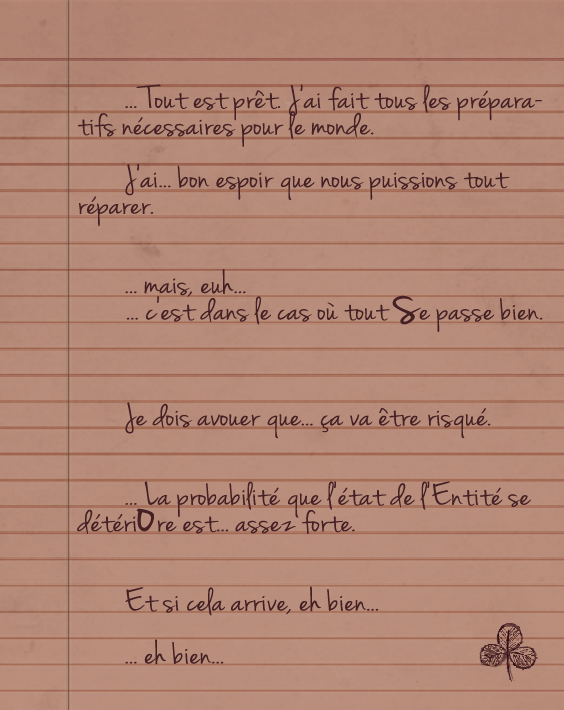 ... Tout est prêt. J'ai fait tous les prépara-
tifs nécessaires pour le monde.
J'ai... bon espoir que nous puissions tout
réparer.
... mais, euh...
... c'est dans le cas où tout Se passe bien.
Je dois avouer que... ça va être risqué.
... La probabilité que l'état de l'Entité se
détériOre est... assez forte.
Et si cela arrive, eh bien...
... eh bien...